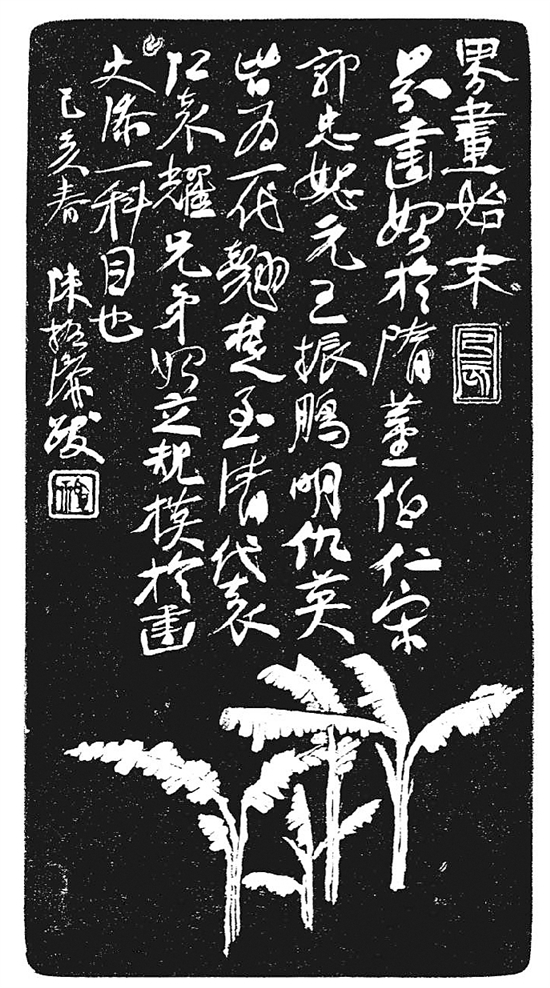 界畫始末
界畫始於隋董伯仁宋
郭忠恕元王振鵬明仇英
皆為一代翹楚至清代袁
江袁耀兄弟始立規模於畫
史添一科目也
己亥春
陳